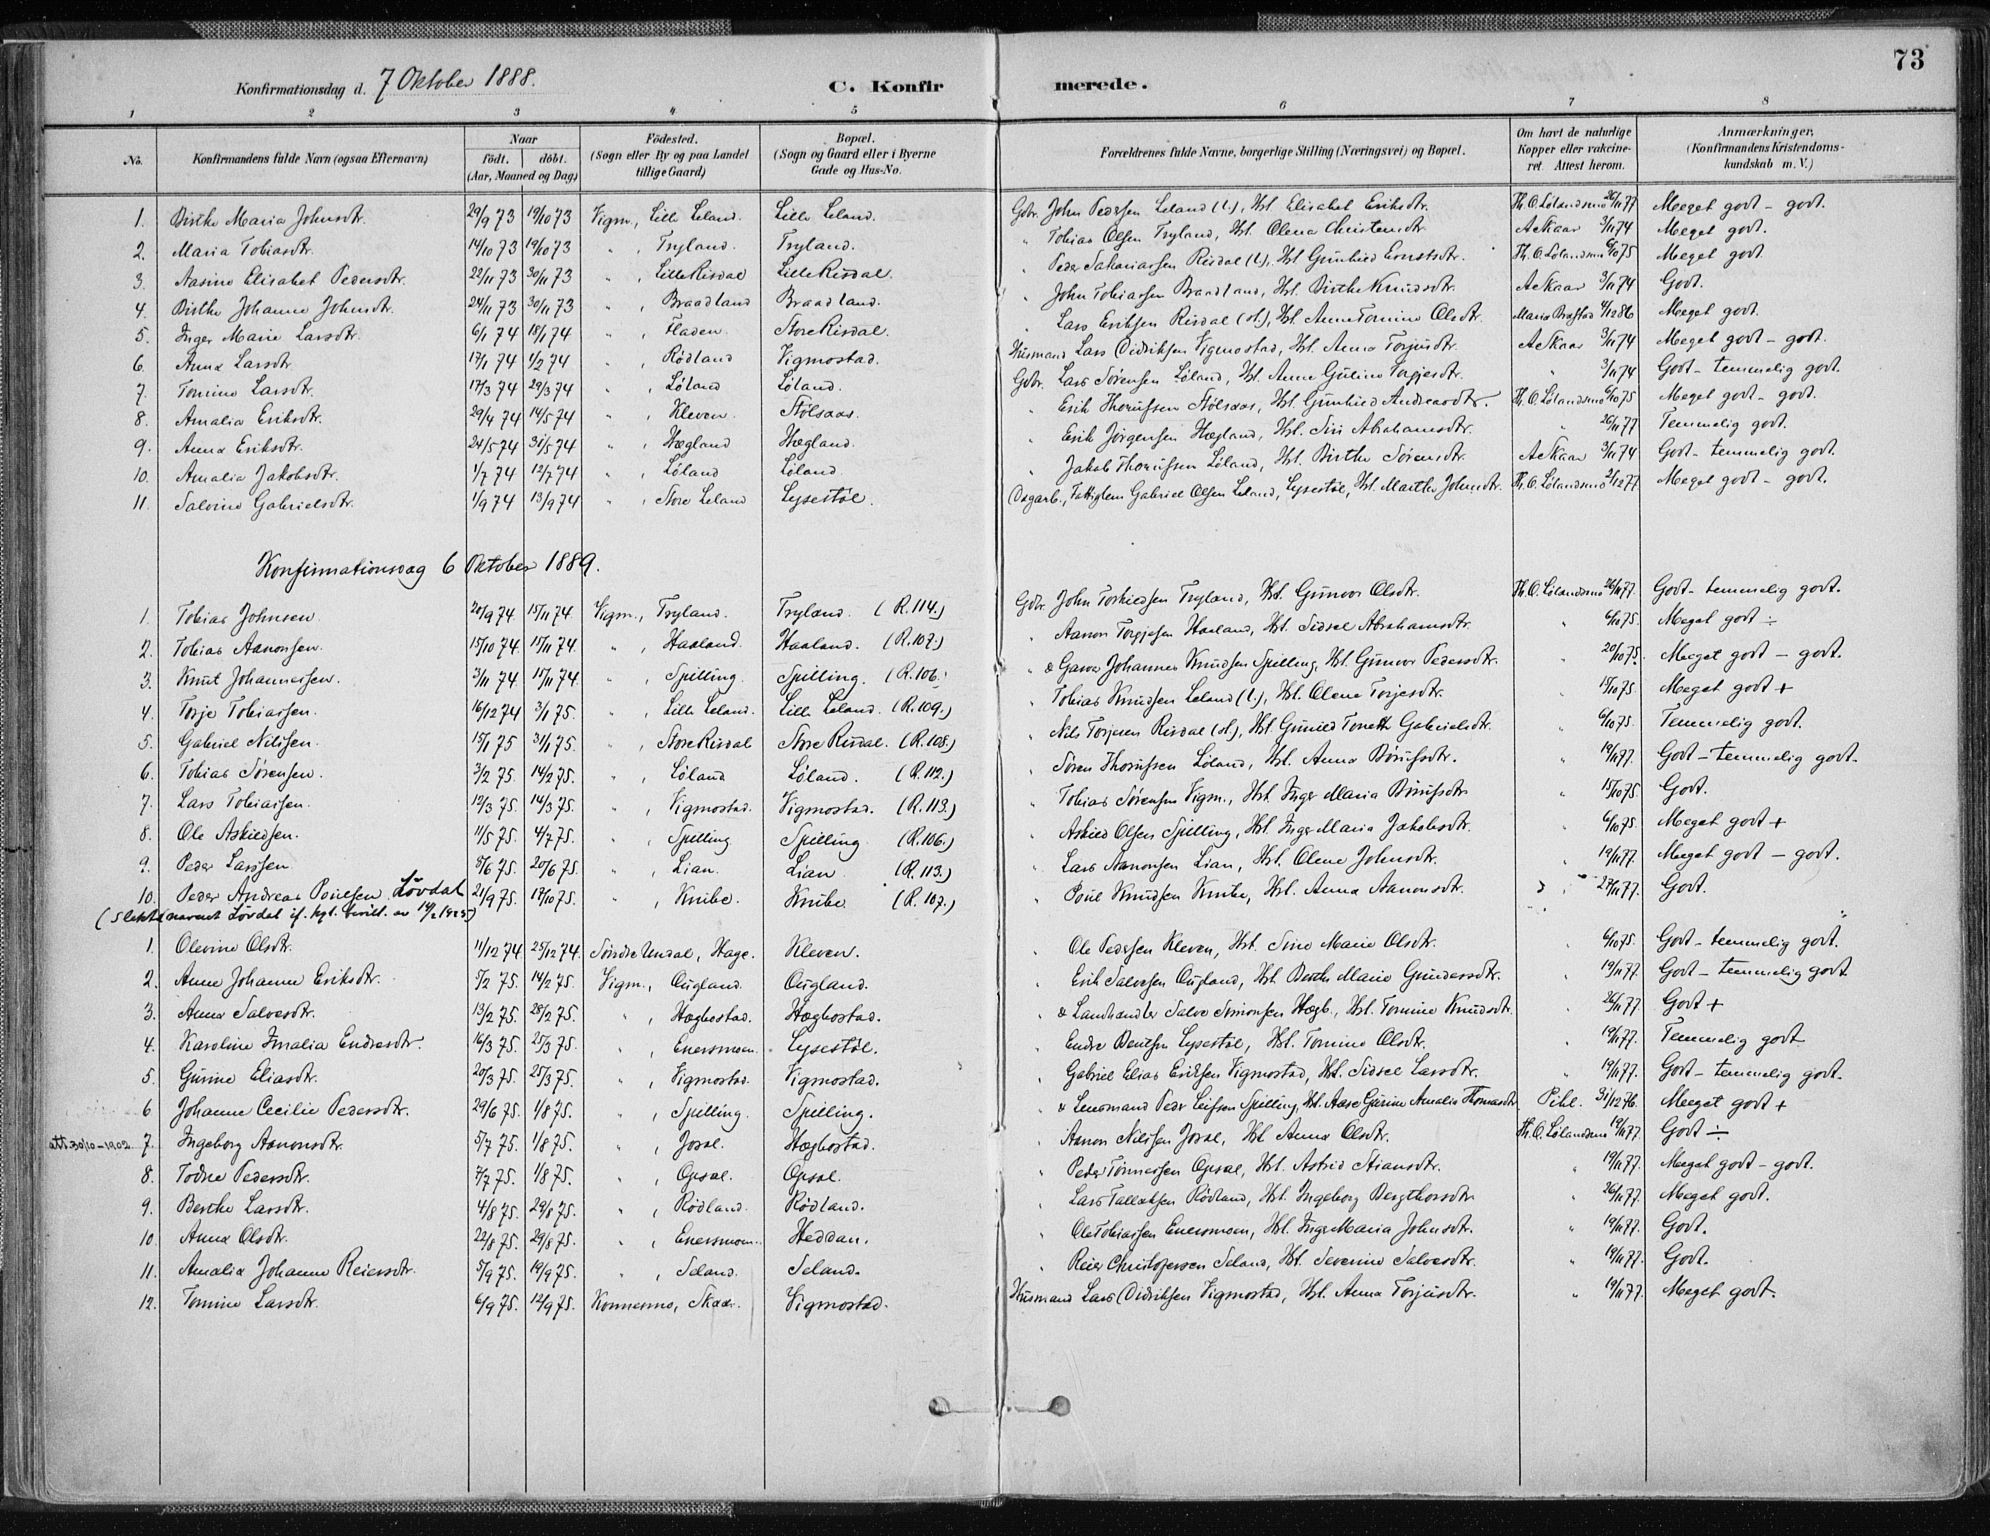 73
Konfirmationsdag d. 7 Oktober 1888. C. Konfirmerede.
1 2 3 4 5 6 7 8
No. Konfirmandens fulde Navn (ogsaa Efternavn) Naar födt. döbt. (Aar, Maaned og Dag) Födested. (Sogn eller By og paa Landet tillige Gaard) Bopæl. (Sogn og Gaard eller i Byerne Gade og Hus-No. Forældrenes fulde Navne, borgerlige Stilling (Næringsvei) og Bopæl. Om havt de naturlige Kopper eller vakcineret. Attest herom. Anmærkninger, (Konfirmandens Kristendomskundskab m. V.)
1. Birthe Maria Johnsdtr. 29/9 73 19/10 73 Vigm., Lille Leland. Lille Leland. Gbr. John Pedersen Leland (l.), Hst. Elisabet Eriksdtr. Th. O. Lølandsmo 26/11 77 Meget godt - godt.
2. Maria Tobiasdtr. 14/10 73 19/10 73 " , Tryland. Tryland. " Tobias Olsen Tryland, Hst. Olena Christensdtr. A Skaar 3/11 74 Meget godt.
3. Nasine Elisabet Pedersdtr. 22/11 73 30/11 73 " , Lille Risdal Lille Risdal. " Peder Sakariassen Risdal (l.), Hst. Gunhild Ernstsdtr. Th. O. Lølandsmo 6/10 75 Meget godt.
4. Birthe Johanne Johnsdtr. 24/11 73 30/11 73 " , Braadland Braadland. " John Tobiassen Braadland, Hst. Birthe Knudsdtr. A Skaar 3/11 74 Godt.
5. Inger Marie Larsdtr. 6/1 74 18/1 74 " , Fladen. Store Risdal. " Lars Eriksen Risdal (st.), Hst. Anne Tomine Olsdtr. Maria 4/12 86 Meget godt.
6. Anna Larsdtr. 17/1 74 1/2 74 " , Rödland Vigmostad. Husmand Lars Didriksen Vigmostad, Hst. Anna Torjusdtr. A Skaar 3/11 74 Meget godt - godt.
7. Tomine Larsdtr. 17/3 74 29/3 74 " , Løland Løland. Gbr. Lars Sørensen Løland, Hst. Anne Guline Torjesdtr. " 3/11 74 Godt - temmelig godt.
8. Amalia Eriksdtr. 29/4 74 14/5 74 " , Kleven. Stølsaas. " Erik Thorufsen Stølsaas, Hst. Gunhild Andreasdtr. Th. O. Lølandsmo 6/10 75 Meget godt - godt.
9. Anna Eriksdtr. 24/5 74 31/5 74 " , Hægland Hægland. " Erik Jørgensen Hægland, Hst. Siri Abrahamsdtr. " 26/11 77 Temmelig godt.
10. Amalia Jakobsdtr. 1/7 74 12/7 74 " , Løland Løland. " Jakob Thorufsen Løland, Hst. Birthe Sørensdtr. A Skaar 3/11 74 Godt - temmelig godt.
11. Salvine Gabrielsdtr. 1/9 74 13/9 74 " , Store Leland Lysestøl. Dagarb., Fattiglem Gabriel Olsen Leland, Lysestøl, Hst. Marthe Johnsdtr. Th. O. Lølandsmo 2/12 77 Meget godt - godt.
Konfirmationsdag 6 Oktober 1889.
1. Tobias Johnsen 20/9 74 15/11 74. Vigm., Tryland. Tryland. (R. 114.) Gbr. John Torkildsen Tryland, Hst. Gunvor Olsdtr. Th. O. Lølandsmo 26/11 77. Godt - temmelig godt.
2. Tobias Aanonsen. 15/10 74 15/11 74. " , Haaland. Haaland. (R. 107.) " Aanon Torgjesen Haaland, Hst. Sidsel Abrahamsdtr. " 6/10 75. Meget godt ÷
3. Knut Johannessen. 3/11 74 15/11 74. " , Spilling. Spilling. (R. 106. " & Garver Johannes Knudsen Spilling, Hst. Gunvor Pedersdtr. " 20/10 75. Meget godt - godt.
4. Torje Tobiassen. 16/12 74 3/1 75. " , Lille Leland. Lille Leland. (R. 109.) " Tobias Knudsen Leland (l.), Hst. Olene Torjesdtr. " 15/10 75. Meget godt +
5. Gabriel Nilssen. 15/1 75 31/1 75. " , Store Risdal Store Risdal. (R. 108.) " Nils Torjesen Risdal (st.), Hst. Gunild Tonette Gabrielsdtr. " 6/10 75. Temmelig godt.
6. Tobias Sørensen. 3/2 75. 14/2 75. " , Løland Løland. (R. 112.) " Søren Thorufsen Løland, Hst. Anna Børufsdtr. " 19/11 77. Godt - temmelig godt.
7. Lars Tobiassen. 12/3 75. 14/3 75. " , Vigmostad. Vigmostad. (R. 113.) " Tobias Sørensen Vigm., Hst. Inger Maria Børufsdtr. " 15/10 75 Godt.
8. Ole Askildsen. 11/5 75. 4/7 75. " , Spilling Spilling (R. 106.) " Askild Olsen Spilling, Hst. Inger Maria Jakobsdtr. " 6/10 75. Meget godt +
9. Peder Larssen 5/6 75. 20/6 75. " , Lian. Lian (R. 113.) " Lars Aanonsen Lian, Hst. Olene Johnsdtr. " 19/11 77. Meget godt - godt.
10. Peder Andreas Poulsen Lövdal 21/9 75. 17/10 75. " , Knibe. Knibe (R. 107.) " Poul Knudsen Knibe, Hst. Anna Aanonsdtr. " 27/11 77. Godt.
(Slektsnavnet Lövdal if. kgl. bevill. av 14/2 1925)
1. Olevine Olsdtr. 11/12 74. 25/12 74. Søndre Undal, Hage. Kleven. " Ole Pedersen Kleven, Hst. Sine Marie Olsdtr. " 6/10 75. Godt - temmelig godt.
2. Anne Johanne Eriksdtr. 5/2 75. 14/2 75. Vigm., Øugland. Øugland. " Erik Salvesen Øugland, Hst. Berthe Marie Gundersdtr. " 19/11 77. Godt - temmelig godt
3. Anna Salvesdtr. 13/2 75. 28/2 75. " , Hægbostad. Hægbostad. " & Landhandler Salve Simonsen Hægb., Hst. Tomine Knudsdtr. " 26/11 77. Godt +
4. Karoline Amalia Endresdtr. 16/3 75. 25/3 75. " , Enersmoen. Lysestøl. " Endre Bentsen Lysestøl, Hst. Tomine Olsdtr. " 19/11 77. Temmelig godt
5. Gurine Eliasdtr. 20/3 75. 25/3 75. " , Vigmostad. Vigmostad. " Gabriel Elias Eriksen Vigmostad, Hst. Sidsel Larsdtr. " 19/11 77. Godt - temmelig godt.
6 Johanne Cecilie Pedersdtr. 29/6 75. 1/8 75. " , Spilling. Spilling. " & Lensmand Peder Leifsen Spilling, Hst. Aase Gurine Amalia Thomasdtr. Pihl. 31/12 76. Meget godt +
att. 30/10-1902. 7. Ingeborg Aanonsdtr. 5/7 75. 1/8 75. " , Josal. Hægbostad. " Aanon Nilssen Josal, Hst. Anna Olsdtr. Th. O. Lølandsmo 19/11 77. Godt ÷
8. Todne Pedersdtr. 7/7 75. 1/8 75. " , Opsal. Opsal. " Peder Tönnessen Opsal, Hst. Astrid Stiansdtr. " 19/11 77. Meget godt - godt.
9. Berthe Larsdtr. 4/8 75. 29/8 75. " , Rödland. Rödland. " Lars Tallaksen Rödland, Hst. Ingeborg Bergthorsdtr. " 26/11 77. Meget godt.
10. Anna Olsdtr. 22/8 75. 29/8 75. " , Enersmoen. Heddan. " Ole Tobiassen Enersmoen, Hst. Inger Maria Johnsdtr. " 19/11 77. Godt.
11. Amalia Johanne Reiersdtr. 5/9 75. 19/9 75. " , Seland. Seland. " Reier Christofersen Seland, Hst. Severine Salvesdtr. " 19/11 77. Godt.
12. Tomine Larsdtr. 6/9 75. 12/9 75. Konnesmo, Skaar. Vigmostad. Husmand Lars Didriksen Vigmostad, Hst. Anna Torjusdtr. " 19/11 77. Meget godt.